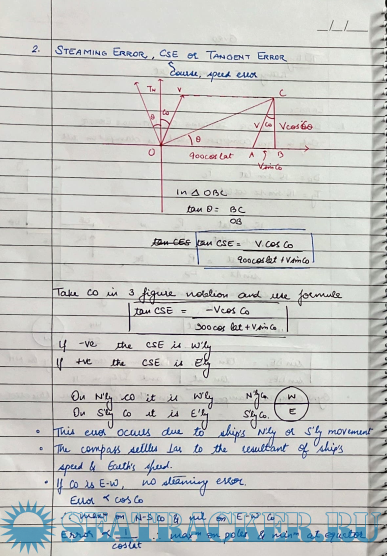 _/_/_
2. STEAMING ERROR, CSE or TANGENT ERROR
Course, speed error
TN V C
θ Co V Co Vcosco
O θ A B
900cos lat Vsin Co
in Δ OBC
tan θ = BC
OB
tan CES tan CSE = V cos Co
900cos lat + Vsin Co
Take CO in 3 figure notation and use formula
tan CSE = -Vcos Co
300 cos lat + Vsin Co
If -ve the CSE is W'ly
If +ve the CSE is E'ly
On N'ly co it is W'ly N'ly Co. W
On S'ly Co it is E'ly S'ly Co. E
• This error occurs due to ship's N'ly or S'ly movement
• The compass settles lar to the resultant of ship's
speed & Earth's speed.
• If Co is E-W, no steaming error.
Error ∝ cos Co
max on N-S Co & nil on E-W Co
Error ∝ 1 max on poles & min at equator
cos lat
SEATRACKER.RU